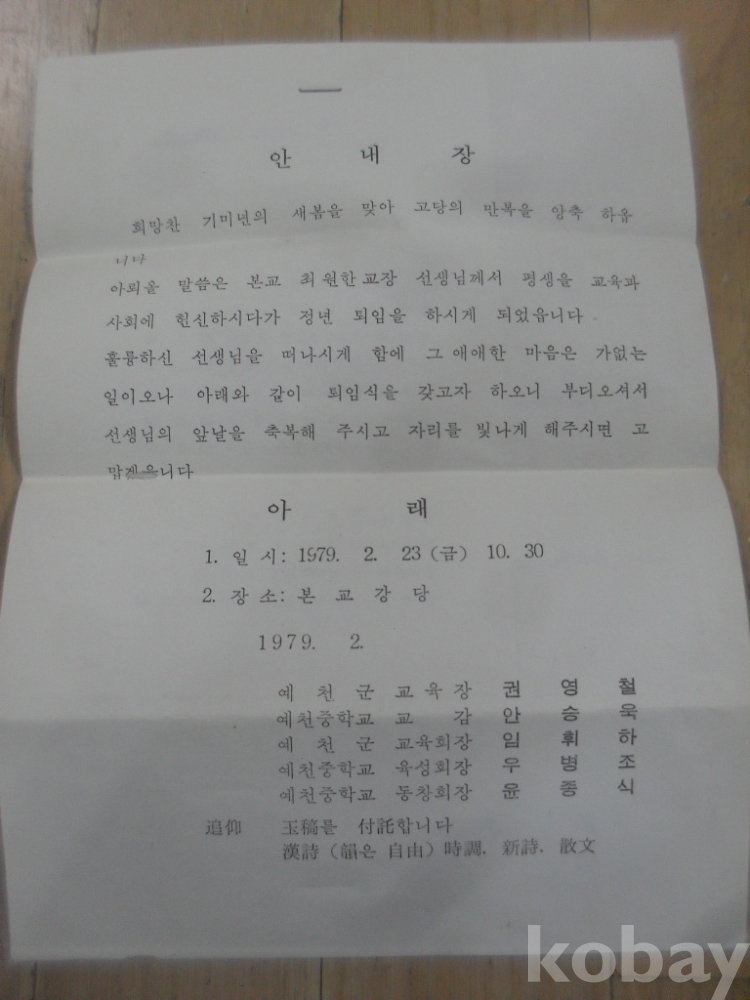 안 내 장
희망찬 기미년의 새봄을 맞아 고당의 만복을 앙축 하옵
니다
아뢰올 말씀은 본교 최원한교장 선생님께서 평생을 교육과
사회에 헌신하시다가 정년 퇴임을 하시게 되었읍니다
훌륭하신 선생님을 떠나시게 함에 그애애한 마음은 가없는
일이오나 아래와 같이 퇴임식을 갖고자 하오니 부디오셔서
선생님의 앞날을 축복해 주시고 자리를 빛나게 해주시면 고
맙겠읍니다
아 래
1. 일 시: 1979. 2. 23 (금) 10. 30
2. 장 소: 본 교 강 당
1979. 2.
예 천 군 교 육 장 권 영 철
예천중학교 교 감 안 승 욱
예 천 군 교육회장 임 휘 하
예천중학교 육성회장 우 병 조
예천중학교 동창회장 윤 종 식
追仰 玉稿를 付託합니다
漢詩 (韻은 自由) 時調. 新詩. 散文
kobay